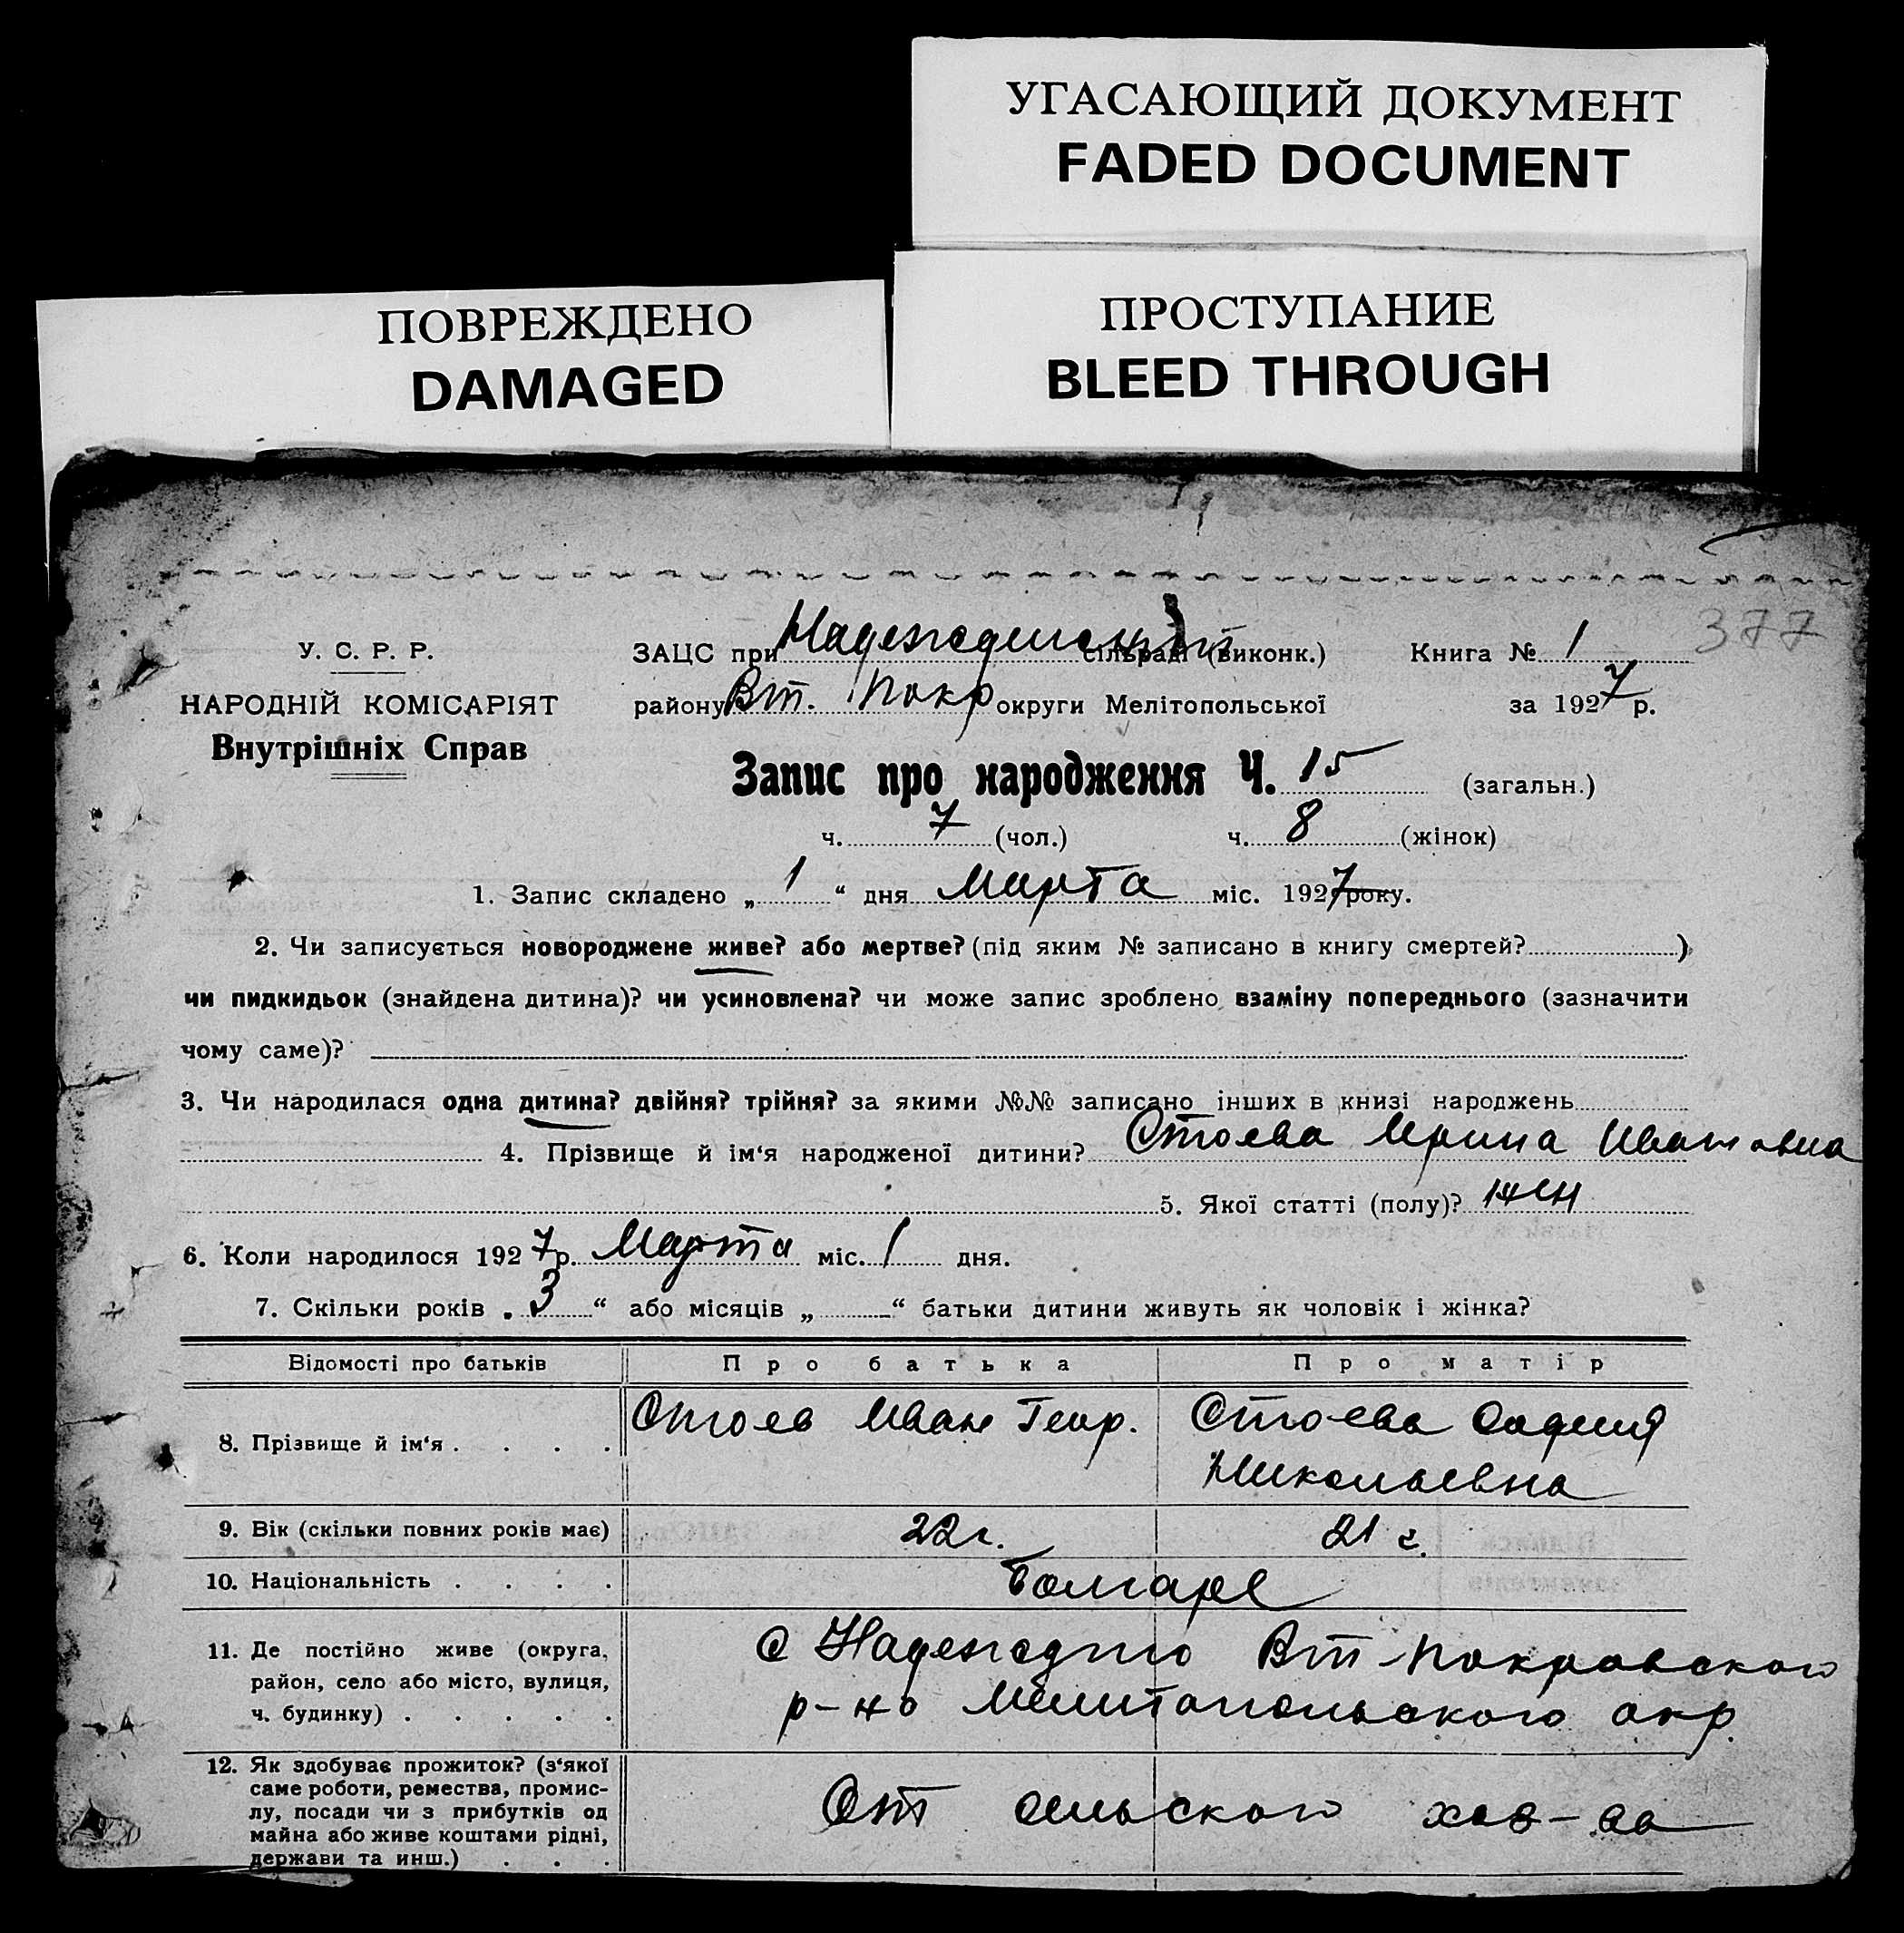 УГАСАЮЩИЙ ДОКУМЕНТ
FADED DOCUMENT
ПОВРЕЖДЕНО
DAMAGED
ПРОСТУПАНИЕ
BLEED THROUGH
377
У. С. Р. Р.
НАРОДНІЙ КОМІСАРІЯТ
Внутрішніх Справ
ЗАЦС при Надеждинский сільраді (виконк.) Книга № 1
району Вт. Покр округи Мелітопольської за 1927 р.
Запис про народження Ч. 15 (загальн.)
ч. 7 (чол.) ч. 8 (жінок)
1. Запис складено „ 1 “ дня Марта міс. 1927 року.
2. Чи записується новороджене живе? або мертве? (під яким № записано в книгу смертей? )
чи пидкидьок (знайдена дитина)? чи усиновлена? чи може запис зроблено взаміну попереднього (зазначити
чому саме)?
3. Чи народилася одна дитина? двійня? трійня? за якими №№ записано інших в книзі народжень
4. Прізвище й ім‘я народженої дитини? Стоева Ирина Ивановна
5. Якої статті (полу)? жен
6. Коли народилося 1927 р. Марта міс. 1 дня.
7. Скільки років „ 3 “ або місяців „ “ батьки дитини живуть як чоловік і жінка?
Відомості про батьків Про батька Про матір
8. Прізвище й ім‘я . . . . Стоев Иван Геор. Стоева София
Николаевна
9. Вік (скільки повних років має) 22 г. 21 г.
10. Національність . . . . Болгаре
11. Де постійно живе (округа, С Надеждино Вт-Покровского
район, село або місто, вулиця, р-но Мелитопольского окр.
ч. будинку) . . . . .
12. Як здобуває прожиток? (з‘якої
саме роботи, ремества, промис-
лу, посади чи з прибутків од От сельского хоз-ва
майна або живе коштами рідні,
держави та инш.) . . .